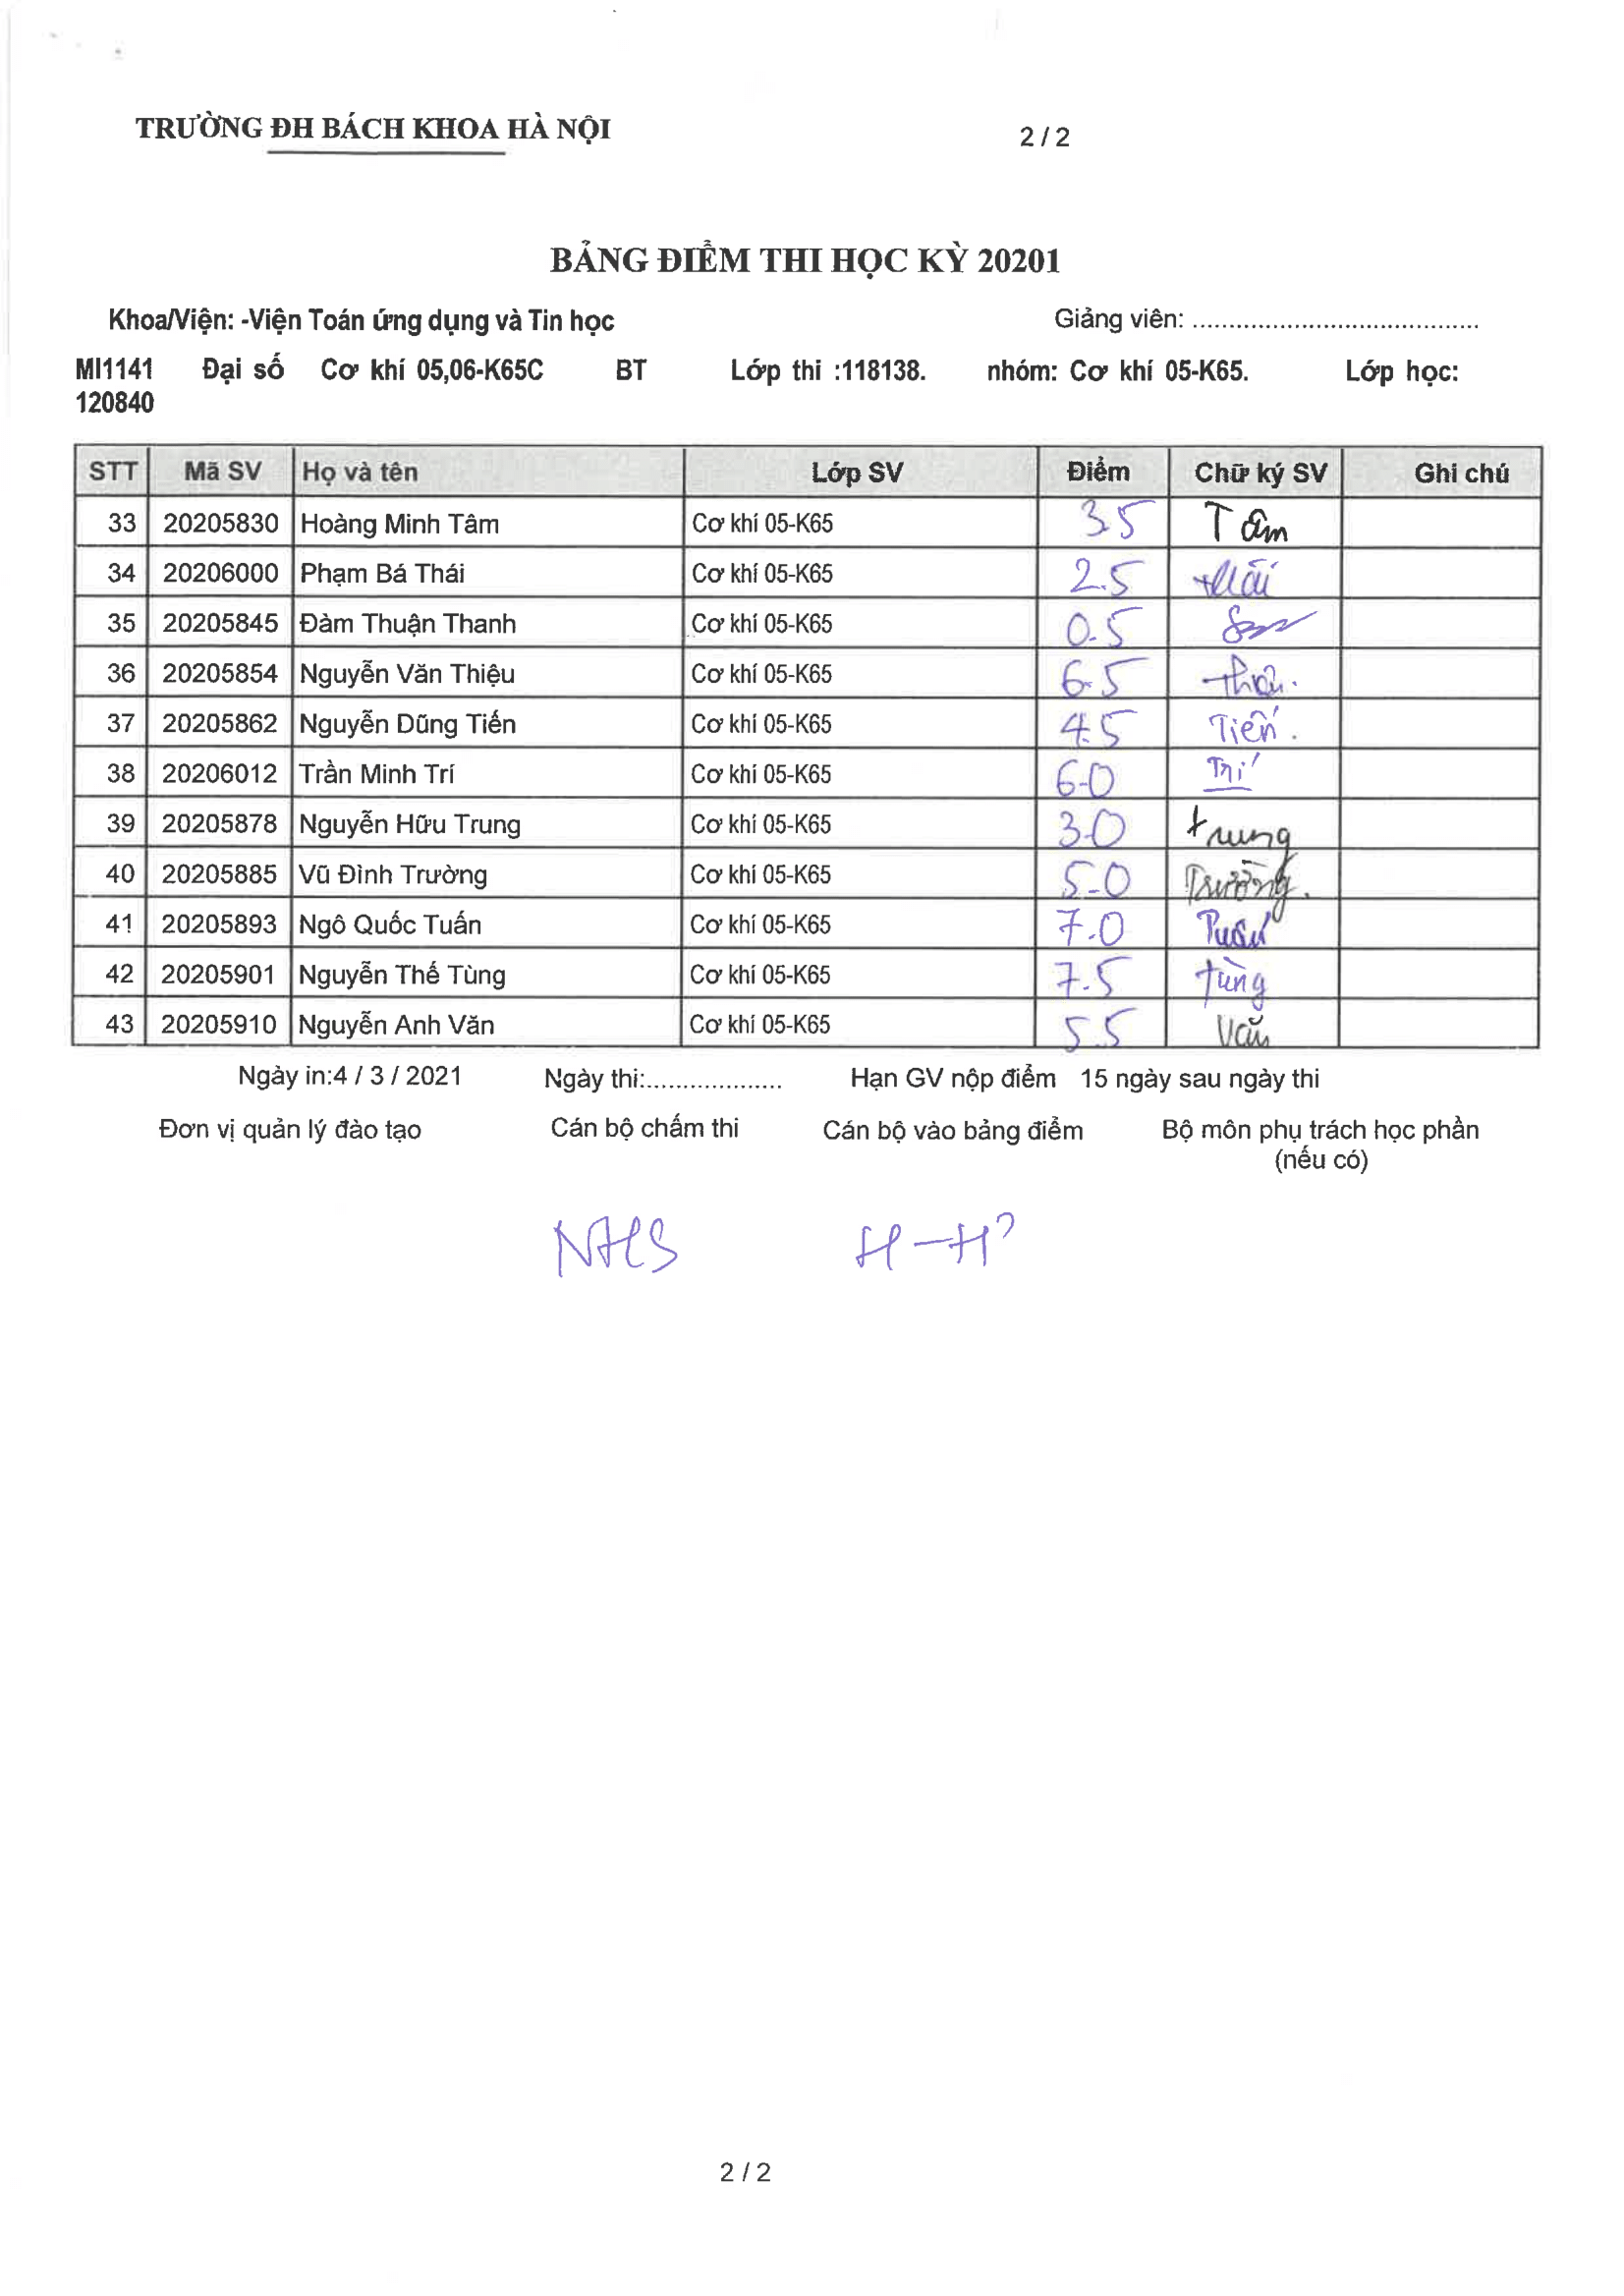 TRƯỜNG ĐH BÁCH KHOA HÀ NỘI 2 / 2
BẢNG ĐIỂM THI HỌC KỲ 20201
Khoa/Viện: -Viện Toán ứng dụng và Tin học Giảng viên: .......................................
MI1141 Đại số Cơ khí 05,06-K65C BT Lớp thi :118138. nhóm: Cơ khí 05-K65. Lớp học:
120840
STT Mã SV Họ và tên Lớp SV Điểm Chữ ký SV Ghi chú
33 20205830 Hoàng Minh Tâm Cơ khí 05-K65 3.5 Tâm
34 20206000 Phạm Bá Thái Cơ khí 05-K65 2.5 thái
35 20205845 Đàm Thuận Thanh Cơ khí 05-K65 0.5
36 20205854 Nguyễn Văn Thiệu Cơ khí 05-K65 6.5
37 20205862 Nguyễn Dũng Tiến Cơ khí 05-K65 4.5 Tiến.
38 20206012 Trần Minh Trí Cơ khí 05-K65 6.0 Trí
39 20205878 Nguyễn Hữu Trung Cơ khí 05-K65 3.0 trung
40 20205885 Vũ Đình Trường Cơ khí 05-K65 5.0 Trường.
41 20205893 Ngô Quốc Tuấn Cơ khí 05-K65 7.0 Tuấn
42 20205901 Nguyễn Thế Tùng Cơ khí 05-K65 7.5 tùng
43 20205910 Nguyễn Anh Văn Cơ khí 05-K65 5.5 Văn
Ngày in:4 / 3 / 2021 Ngày thi:................... Hạn GV nộp điểm 15 ngày sau ngày thi
Đơn vị quản lý đào tạo Cán bộ chấm thi Cán bộ vào bảng điểm Bộ môn phụ trách học phần
(nếu có)
2 / 2